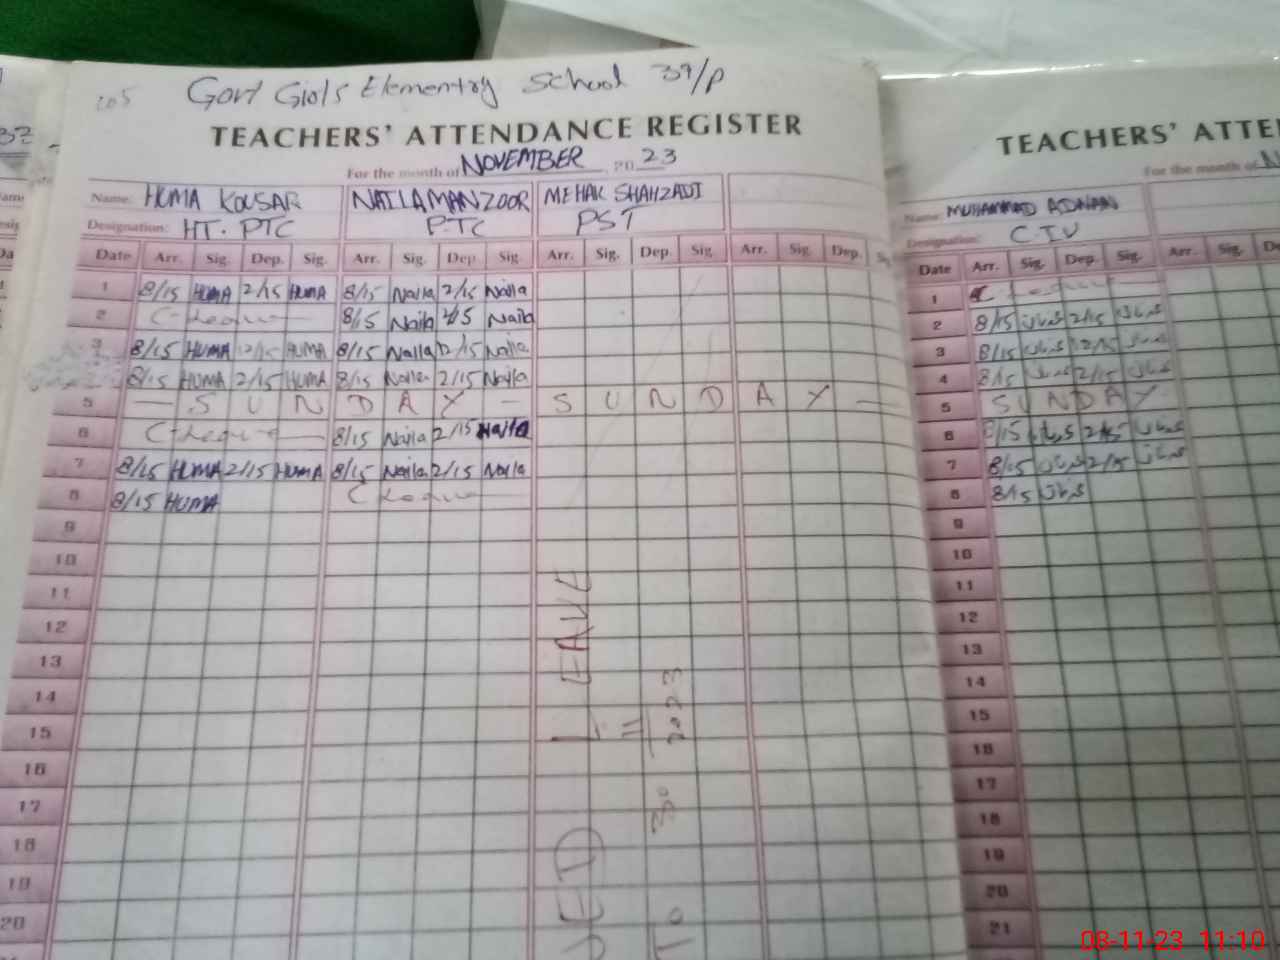 Govt Girls Elementry School 39/P
TEACHERS' ATTENDANCE REGISTER
For the month of NOVEMBER 2023
Name: HUMA KOUSAR NAILA MANZOOR MEHAK SHAHZADI
Designation: HT. PTC PTC PST
Date Arr. Sig. Dep. Sig. Arr. Sig. Dep. Sig. Arr. Sig. Dep. Sig. Arr. Sig. Dep.
1 8/15 HUMA 2/15 HUMA 8/15 Naila 2/15 Naila
2 8/15 Naila 2/15 Naila
3 8/15 HUMA 12/15 HUMA 8/15 Naila 12/15 Naila
4 8/15 HUMA 2/15 HUMA 8/15 Naila 2/15 Naila
5 — S U N D A Y — S U N D A Y —
6 8/15 Naila 2/15 Naila
7 8/15 HUMA 2/15 HUMA 8/15 Naila 2/15 Naila
8 8/15 HUMA
9
10
11
12
13
14
15
16
17
18
19
20
LEAVE
11
2023
TO 30
TEACHERS' ATTE
For the month of
Name: MUHAMMAD ADNAN
Designation: C.IV
Date Arr. Sig. Dep. Sig. Arr. Sig. Dep.
1
2 8/15 2/15
3 8/15 12/15
4 8/15 2/15
5 SUNDAY
6 8/15 2/15
7 8/15 2/15
8 8/15
9
10
11
12
13
14
15
16
17
18
19
20
21
08-11-23 11:10